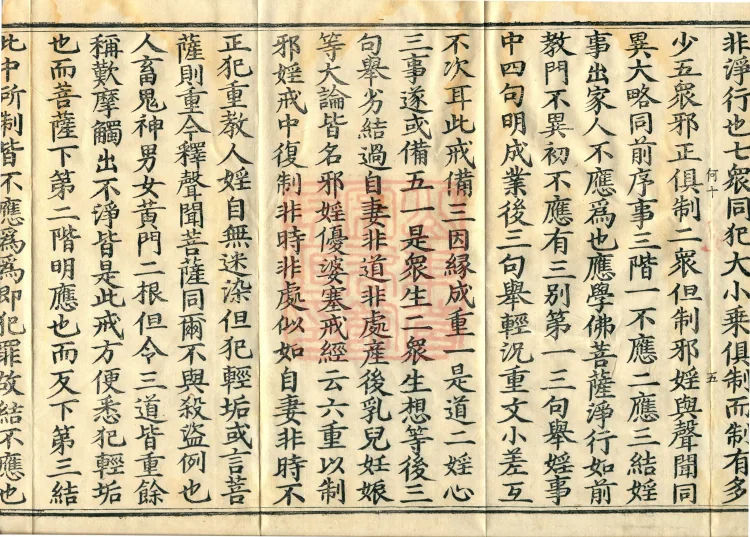 非淨行也七眾同犯大小乗俱制而制有多
何十 五
少五眾邪正俱制二眾但制邪婬與聲聞同
異大略同前序事三階一不應二應三結婬
事出家人不應爲也應學佛菩薩淨行如前
教門不異初不應有三别第一三句舉婬事
中四句明成業後三句舉輕況重文小差互
不次耳此戒備三因緣成重一是道二婬心
三事遂或備五一是眾生二眾生想等後三
句舉劣結過自妻非道非處産後乳兒妊娠
等大論皆名邪婬優婆塞戒經云六重以制
邪婬戒中復制非時非處似如自妻非時不
正犯重教人婬自無迷染但犯輕垢或言菩
薩則重今釋聲聞菩薩同爾不與殺盜例也
人畜鬼神男女黄門二根但令三道皆重餘
稱歎摩觸出不淨皆是此戒方便悉犯輕垢
也而菩薩下第二階明應也而反下第三結
此中所制皆不應爲爲即犯罪故結不應也